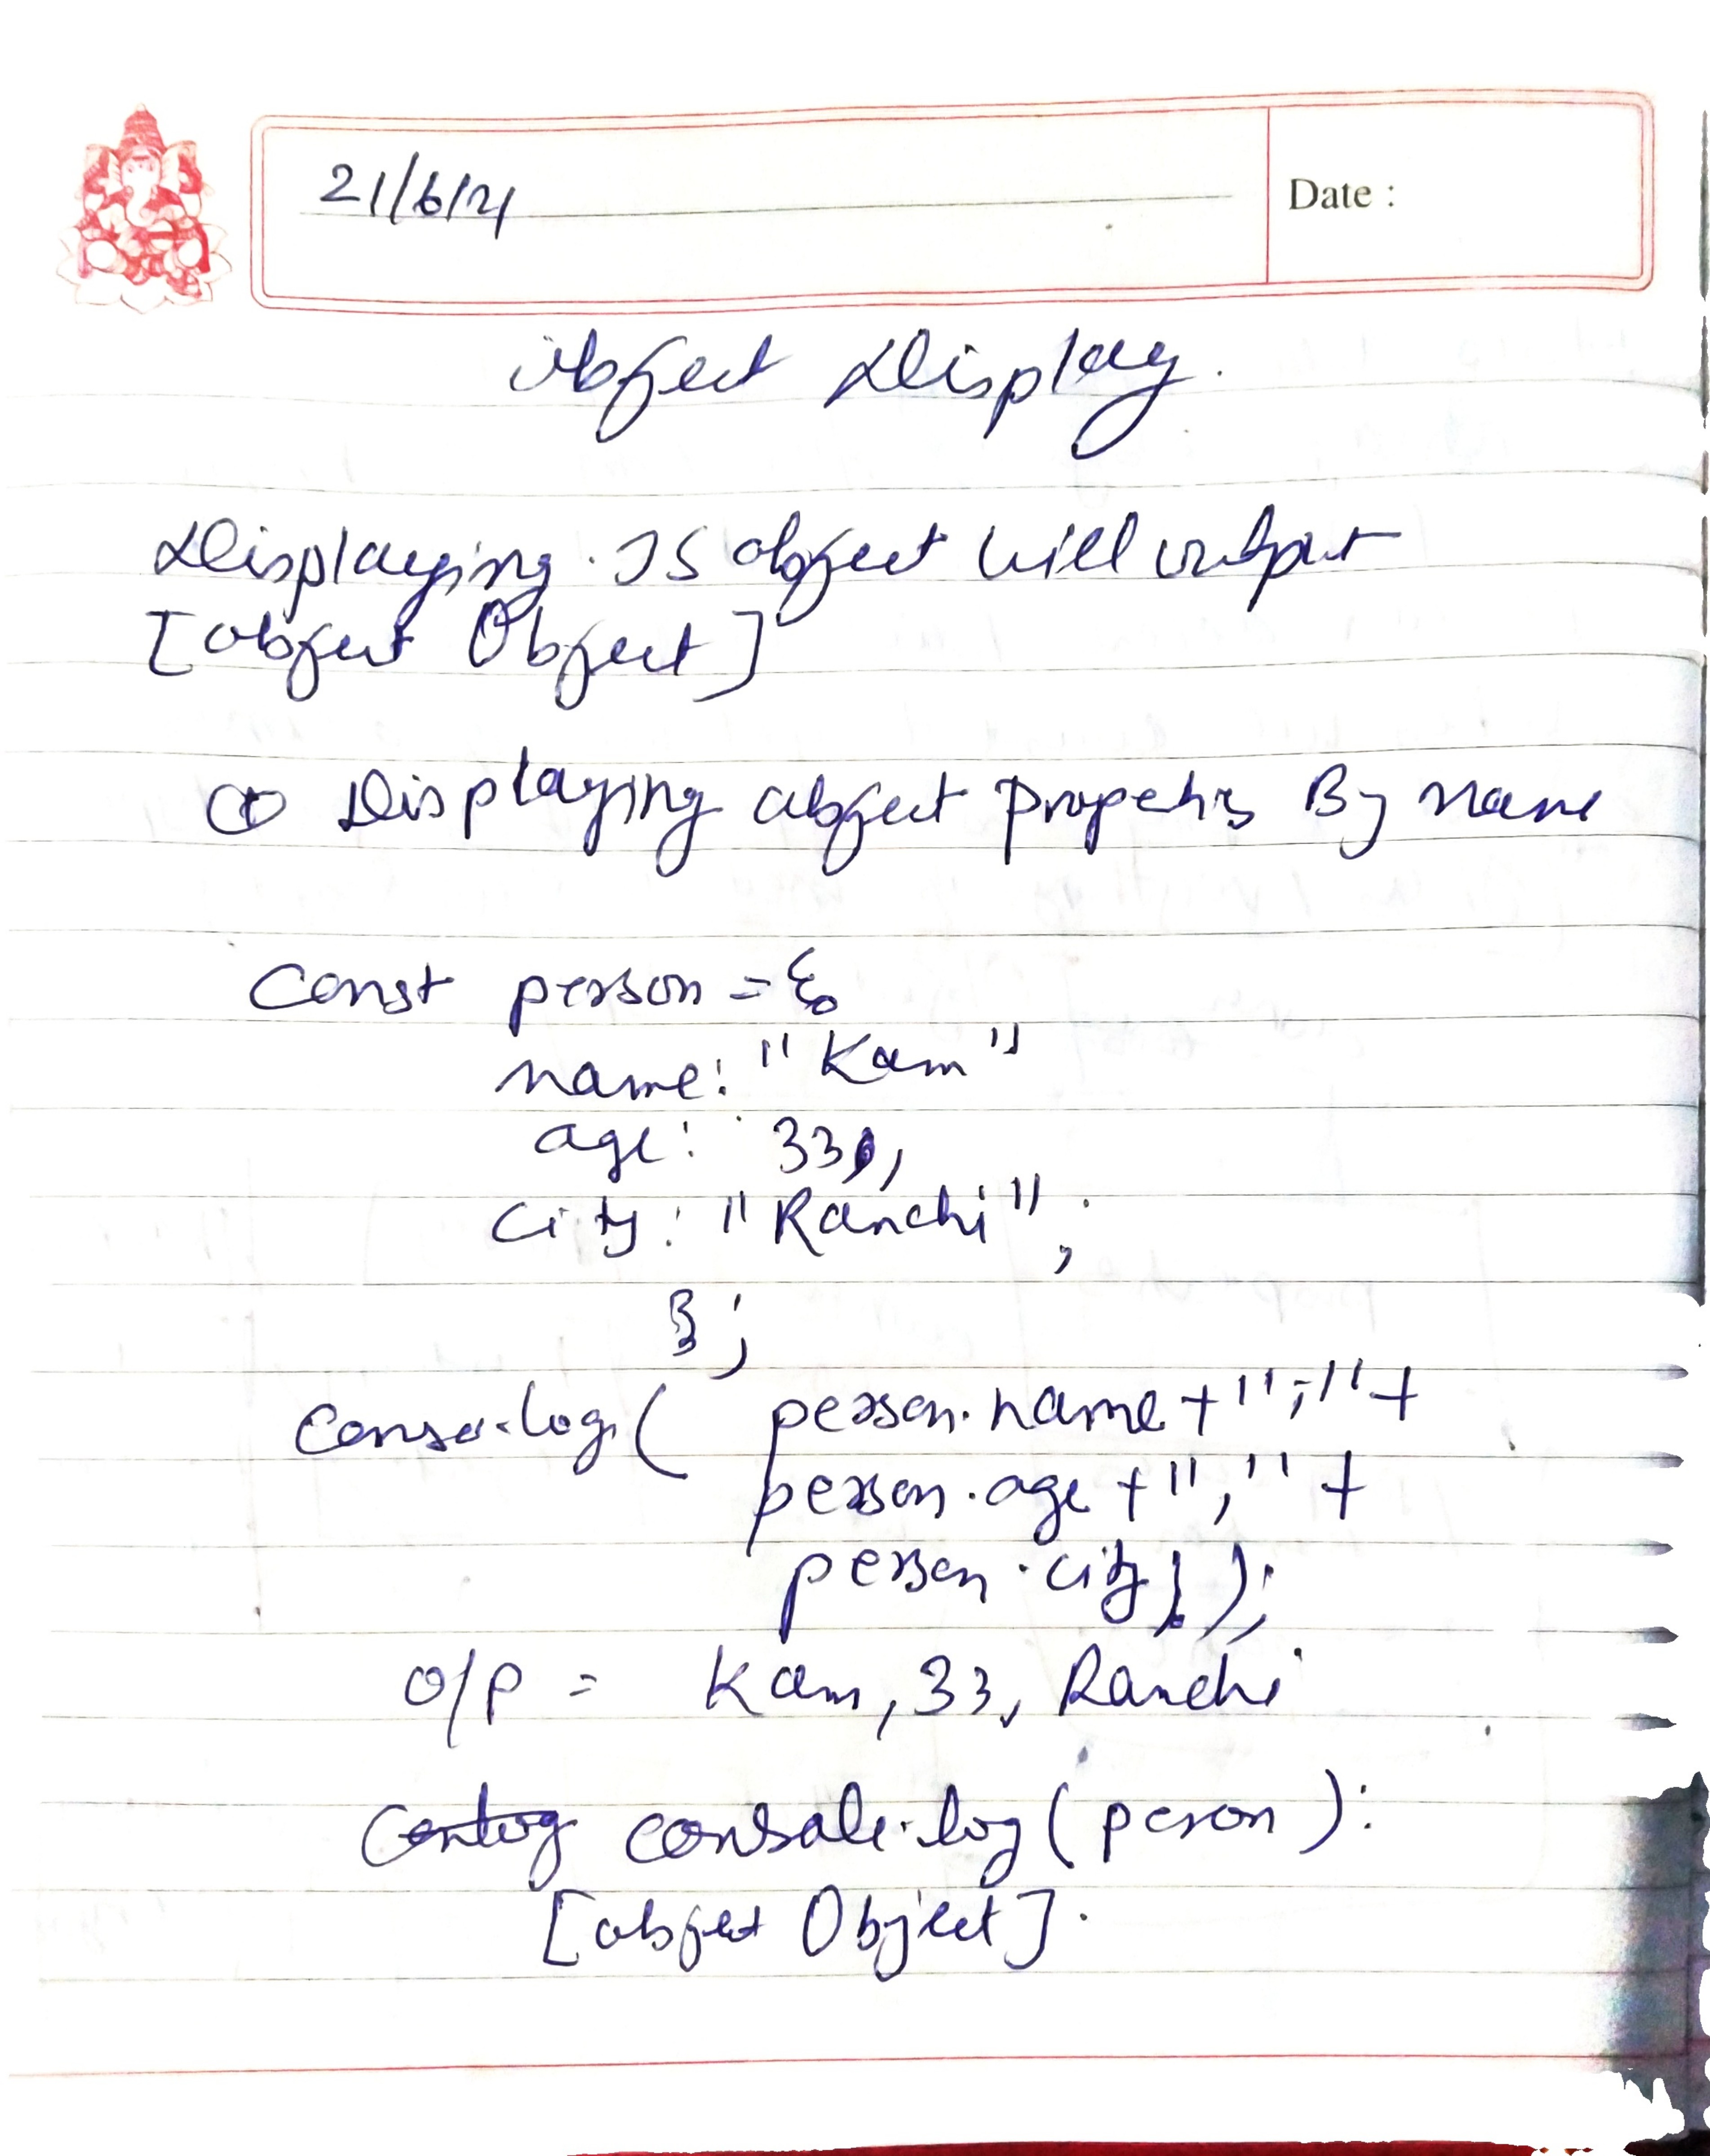 21/6/21
Date :
Object Display.
Displaying JS object will output
[object Object]
① Displaying object properties By name
Const person = {
name: "Kam"
age: 33,
city: "Ranchi";
};
conso.log( person.name + "," +
person.age + "," +
person.city);
O/P = Kam, 33, Ranchi
console.log(person):
[object Object].